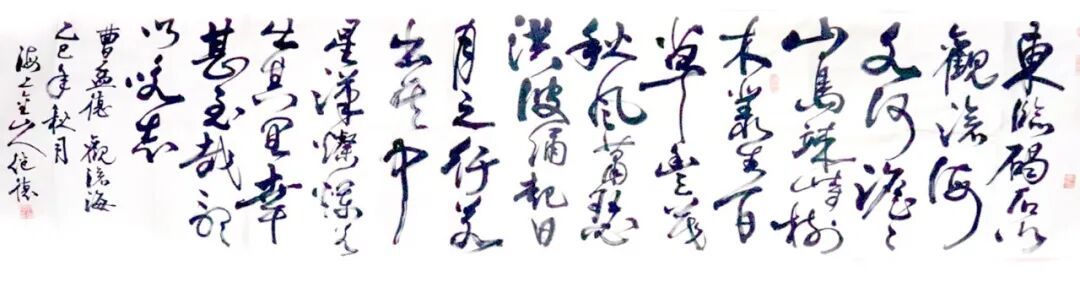 東臨碣石以
觀滄海
水何澹〻
山島竦峙樹
木叢生百
草豐茂
秋風蕭瑟
洪波涌起日
月之行若
出其中
星漢燦爛若
出其里幸
甚至哉歌
以咏志
曹孟德觀滄海
乙巳年秋月
海上山人